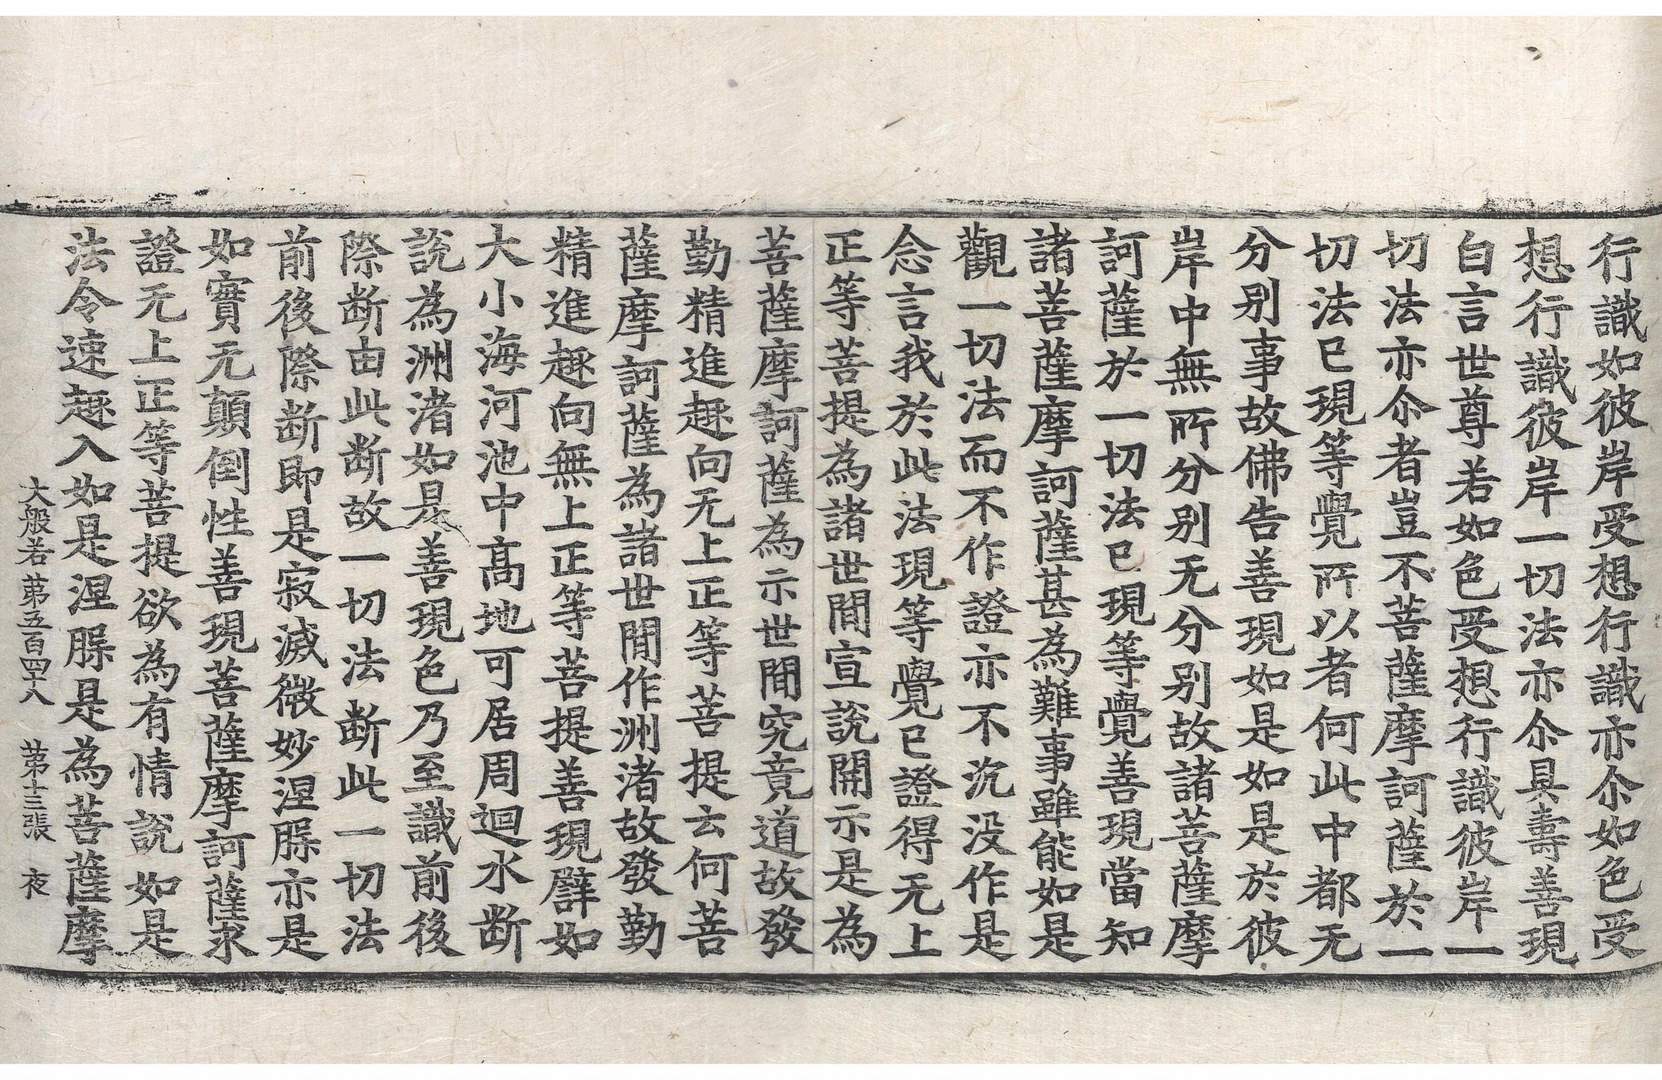 行識如彼岸受想行識亦尒如色受
想行識彼岸一切法亦尒具壽善現
白言世尊若如色受想行識彼岸一
切法亦尒者豈不菩薩摩訶薩於一
切法已現等覺所以者何此中都无
分别事故佛告善現如是如是於彼
岸中無所分别无分别故諸菩薩摩
訶薩於一切法已現等覺善現當知
諸菩薩摩訶薩甚為難事雖能如是
觀一切法而不作證亦不沉没作是
念言我於此法現等覺已證得无上
正等菩提為諸世間宣說開示是為
菩薩摩訶薩為示世間究竟道故發
勤精進趣向无上正等菩提云何菩
薩摩訶薩為諸世間作洲渚故發勤
精進趣向無上正等菩提善現譬如
大小海河池中髙地可居周迴水断
說為洲渚如是善現色乃至識前後
際断由此断故一切法断此一切法
前後際断即是寂滅微妙涅槃亦是
如實无顛倒性善現菩薩摩訶薩求
證无上正等菩提欲為有情說如是
法令速趣入如是涅槃是為菩薩摩
大般若第五百四十八　第十三張　夜